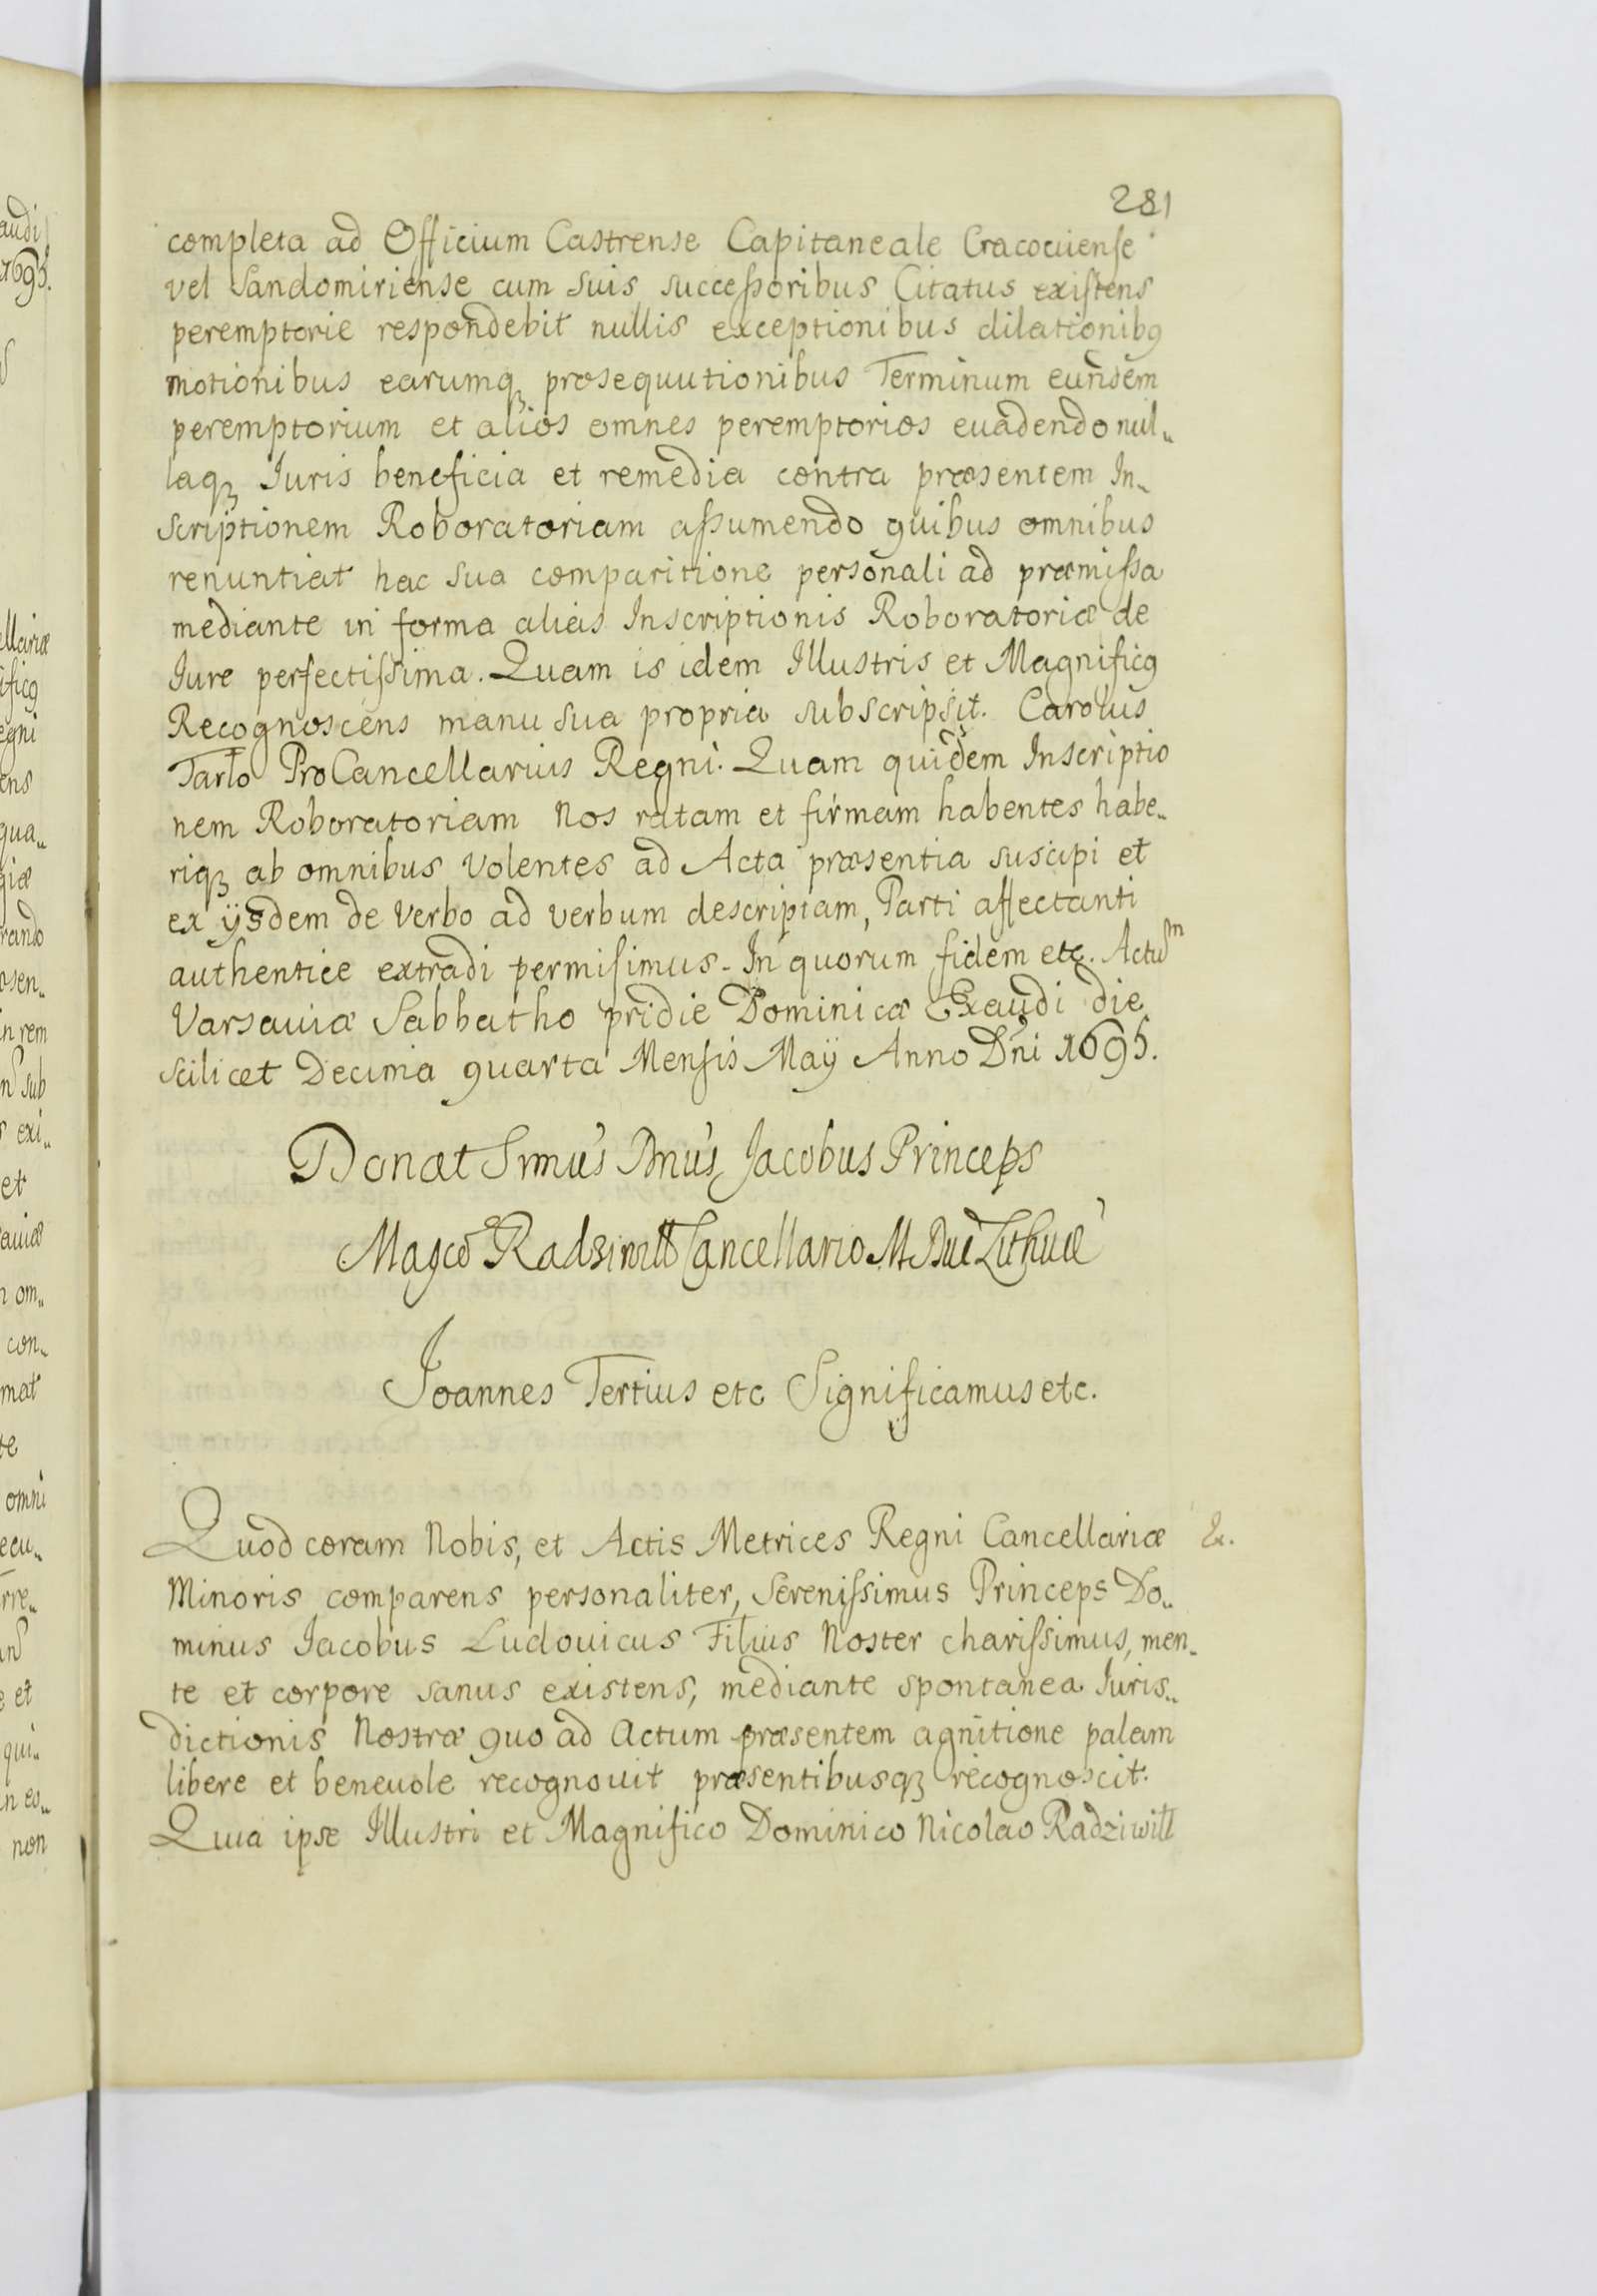 281
completa ad Officium Castrense Capitaneale Cracouiense
vel Sandomiriense cum suis successoribus Citatus existens
peremptorie respondebit nullis exceptionibus dilationibꝰ
motionibus earumqꝫ prosequutionibus Terminum eundem
peremptorium et alios omnes peremptorios euadendo nul„
laqꝫ Iuris beneficia et remedia contra præsentem In„
scriptionem Roboratoriam assumendo quibus omnibus
renuntiat hac sua comparitione personali ad præmissa
mediante in forma alias Inscriptionis Roboratoriæ de
Iure perfectissima. Quam is idem Illustris et Magnificꝰ
Recognoscens manu sua propria subscripsit. Carolus
Tarło ProCancellarius Regni. Quam quidem Inscriptio
nem Roboratoriam Nos ratam et firmam habentes habe„
riqꝫ ab omnibus Volentes ad Acta præsentia suscipi et
ex ijsdem de Verbo ad verbum descriptam, Parti affectanti
authentice extradi permisimus. In quorum fidem etc. Actuᵐ
Varsauiæ Sabbatho pridie Dominicæ Exaudi die
scilicet Decima quarta Mensis Maÿ Anno Dñi 1695.
Donat Srmus Dnus Jacobus Princeps
Magco Radziwiłł Cancellario M Duc Lithuæ
Joannes Tertius etc Significamus etc.
Quod coram Nobis, et Actis Metrices Regni Cancellariæ
Minoris comparens personaliter, Serenissimus Princeps Do„
minus Iacobus Ludouicus Filius Noster charissimus, men„
te et corpore sanus existens, mediante spontanea Iuris„
dictionis Nostræ quo ad Actum præsentem agnitione palam
libere et beneuole recognouit præsentibusqꝫ recognoscit.
Quia ipse Illustri et Magnifico Dominico Nicolao Radziwiłł